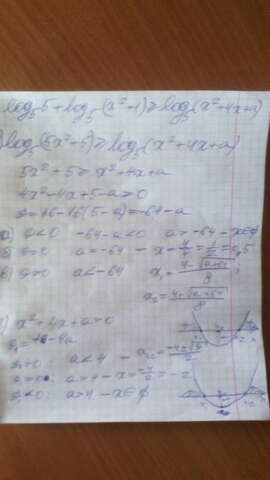 log₅5 + log₅(x²+1) ≥ log₅(x²+4x+a)
log₅(5x²+5) ≥ log₅(x²+4x+a)
5x²+5 ≥ x²+4x+a
4x²-4x+5-a ≥ 0
= 16-16(5-a) = -64-a
а) <0 -64-a<0 a>-64 - x∈
б) =0 a=-64 - x = 4/8 = 1/2 = 0,5
в) >0 a<-64 x₁ =
x₂ =
x²+4x+a>0
= 16-4a
>0: a<4 -
=0: a=4 - x = -4/2 = -2
<0: a>4 - x∈ø